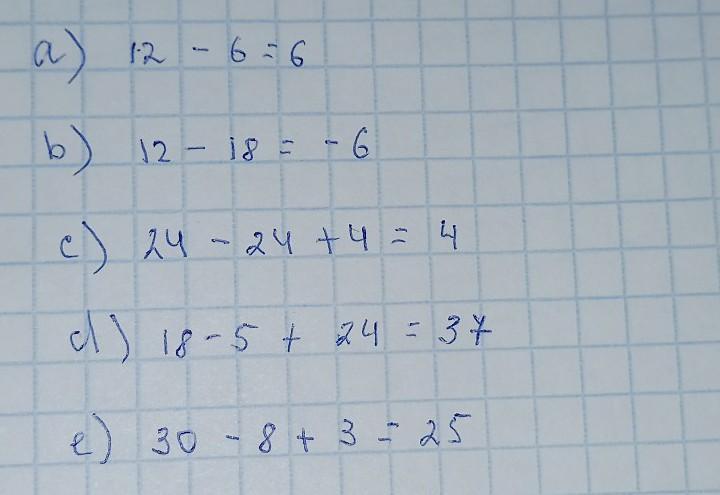 a) 12 - 6 = 6
b) 12 - 18 = - 6
c) 24 - 24 + 4 = 4
d) 18 - 5 + 24 = 37
e) 30 - 8 + 3 = 25